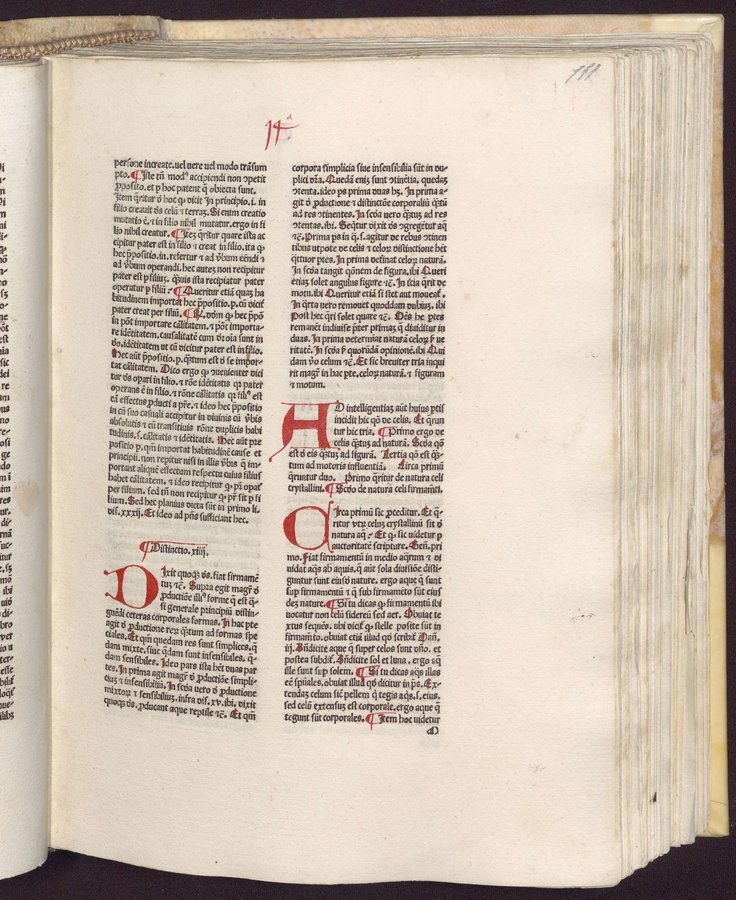 111
14ᵃ
persone increate. uel vere uel modo trãsum
pto. ¶ Iste tñ modꝰ accipiendi non ꝯpetit
ꝓposito. et ꝑ hoc patent q̃ obiecta sunt.
Item q̃ritur ꝺ hoc ꝙ dicit In principio. i. in
filio creauit ds celũ ⁊ terraꝫ. Si enim creatio
mutatio ẽ. ⁊ in filio nihil mutatur. ergo in fi
lio nihil creatur. ¶ Iteꝫ q̃ritur quare ista ac
cipitur pater est in filio ⁊ creat in filio. ita ꝙ
hec p̃positio. in. refertur ⁊ ad ṽbum eẽndi ⁊
ad ṽbum operandi. hec auteꝫ non recipitur
pater est ꝑ filiuꝫ. q̃uis ista recipiatur pater
operatur ꝑ filiũ. ¶ Queritur etiã quaꝫ ha
bitudinem importat hec p̃positio. ꝑ. cũ dicit̃
pater creat per filiũ. ¶ ℞. dõm ꝙ hec p̃põ
in põt importare cãlitatem. ⁊ põt importa-
re idẽtitatem. causalitatẽ cum ꝺr oia sunt in
ꝺo. idẽtitatem ut cũ dicitur pater est in filio.
Hec aũt p̃positio. ꝑ. q̃ntum est ꝺ se impor-
tat cãlitatem. Dico ergo ꝙ ꝯuenienter dici
tur ds opari in filio. ⁊ rõne idẽtitatis qꝫ pater
operans ẽ in filio. ⁊ rõne cãlitatis qꝫ filiꝰ est
cã effectus ꝓducti a pr̃e. ⁊ ideo hec p̃positio
in cũ suo casuali accipitur in diuinis cũ ṽbis
absolutis ⁊ cũ transitiuis rõne duplicis habi
tudinis. s. cãlitatis ⁊ idẽtitatis. Hec aũt pre
positio ꝑ. qm̃ importat habitudinẽ cause et
principii. non repitur nisi in illis ṽbis q̃ im-
portant aliquẽ effectum respectu cuius filius
habet cãlitatem. ⁊ ideo recipitur ꝙ pr̃ opat̃
per filium. sed tñ non recipitur ꝙ pr̃ sit ꝑ fi
lium. Sed hec planius dicta sũt in primo li.
dis. xxxij. Et ideo ad p̃ns sufficiant hec.
¶ Distinctio. xiiij.
Dixit quoqꝫ ds. fiat firmamẽ
tuꝫ ⁊c̃. Supra egit magr̃ ꝺ
ꝓductiõe illiꝰ forme q̃ est q̃-
si generale principiũ distin-
guẽdi ceteras corporales formas. In hac pte
agit ꝺ ꝓductione reꝝ q̃ntum ad formas spe
ciales. Et qm̃ quedam res sunt simplices. q̃
dam mixte. siue q̃dam sunt insensibiles. q̃-
dam sensibiles. Ideo pars ista hẽt duas par
tes. In prima agit magr̃ ꝺ ꝓductiõe simpli-
ciũ ⁊ insensibiliũ. In scd̃a uero ꝺ ꝓductione
mixtoꝝ ⁊ sensibiliuꝫ. infra dis. xv. ibi. dixit
quoqꝫ ds. ꝓducant aque reptile ⁊c̃. Et qm̃
corpora simplicia siue insensibilia sũt in du-
plici dr̃a. Quedã eniꝫ sunt ꝯtinẽtia. quedaꝫ
ꝯtenta. ideo ps prima duas hꝫ. In prima a-
git ꝺ ꝓductione ⁊ distinctõe corporaliũ q̃ntũ
ad res ꝯtinentes. In scd̃a uero q̃ntuꝫ ad res
ꝯtentas. ibi. Seq̃tur dixit ds ꝯgregẽtur aq̃
⁊c̃. Prima ps in q̃. s. agitur de rebus ꝯtinen
tibus utpote de celis ⁊ celoꝝ distinctione hẽt
q̃tuor ptes. In prima definat celoꝝ naturã.
In scd̃a tangit q̃õnem de figura. ibi Queri
etiaꝫ solet angulus figure ⁊c̃. In scia q̃rit de
motu. ibi Queritur etiã si stet aut moueat̃.
In q̃rta uero remouet quoddam dubiuꝫ. ibi
Post hec q̃ri solet quare ⁊c̃. Oẽs he ptes
remanẽt indiuise pter primaꝫ q̃ diuiditur in
duas. In prima determiat naturã celoꝝ ꝺ ue
ritatẽ. In scd̃a ꝺ quorũdã opinionẽ. ibi Qui
dam ṽo celum ⁊c̃. Et sic breuiter tria inqui
rit magr̃ in hac pte. celoꝝ naturã. ⁊ figuram
⁊ motum.
AD intelligentiaꝫ aũt huius ptis
incidit hic q̃o de celis. Et q̃run
tur hic tria. ¶ Primo ergo de
celis q̃ntuꝫ ad naturã. Scd̃a q̃o
est ꝺ eis q̃ntuꝫ ad figurã. Tertia q̃o est q̃n-
tum ad motoris influentiã. Circa primũ
q̃runtur duo. Primo q̃ritur de natura celi
crystallini. ¶ Scd̃o de natura celi firmamẽti.
Circa primũ sic ꝓceditur. Et q̃-
ritur vtꝝ celuꝫ crystallinũ sit ꝺ
natura aq̃ꝝ. Et ꝙ sic uidetur ꝑ
auctoritatẽ scripture. Gen̄. pri
mo. Fiat firmamẽtũ in medio aq̃rum ⁊ di
uidat aq̃s ab aquis. q̃ aũt sola diuisiõe disti-
guntur sunt eiusdꝫ nature. ergo aque q̃ sunt
sup firmamentũ ⁊ q̃ sub firmamẽto sũt eius
deꝫ nature. ¶ Si tu dicas ꝙ firmamẽtũ ibi
uocatur non celũ sidereũ sed aer. Obuiat te
xtus sequẽs. ubi dicit̃ ꝙ stelle posite sũt in
firmam̃to. obuiat etiã illud qd̃ scribit̃ Dañ.
iij. Bñdicite aque q̃ super celos sunt dño. et
postea subdit̃. Bñdicite sol et luna. ergo aq̃
ille sunt sup solem. ¶ Si tu dicas aq̃s illas
eẽ spũales. obuiat illud qd̃ dicitur in ps. Ex-
tendẽs celum sic̃ pellem q̃ tegis aq̃s. s. eius.
sed celũ extensuꝫ est corporale. ergo aque q̃
tegunt sũt corporales. ¶ Item hoc uidetur